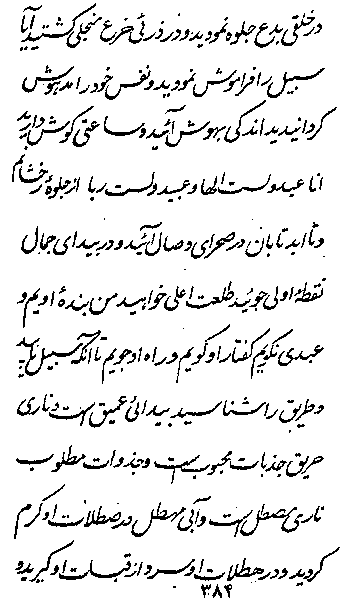 در خلقی بدع جلوه نمودید و در ذرئی خرع منجلی گشتید آیا
سبیل را فراموش نمودید و نفس خود را مدهوش
گردانیدید اندکی بهوش آئید و ساعتی گوش بدارید
انا عبد ولست الها و عبید ولست ربا از جلوهٔ رخشانم
و تا ابد تابان در صحرای وصال آئید و در بیدای جمال
نقطهٔ اولی جوئید طلعت اعلی خواهید من بندهٔ اویم و
عبدی نکویم گفتار او گویم و راه او جویم تا آنکه سبیل یابید
و طریق را شناسید بیدائی عمیق است و ناری
حریق جذبات محبوب است و جذوات مطلوب
ناری مصطل است و آبی مهطل در صطلات او گرم
گردید و در هطلات او سرد از قبسات او گیرید و
۳۸۴